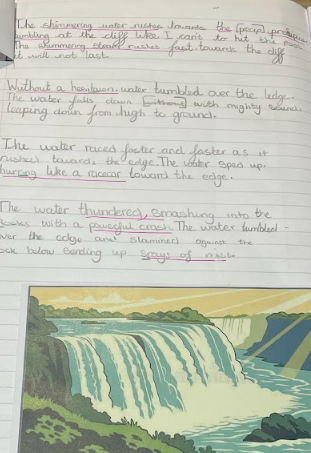 The shimmering water rushes towards the
tumbling at the cliff like I can't to hit the
The shimmering steam rushes fast towards the cliff
it will not last.
Without a hesitation water tumbled over the ledge.
The water falls down with mighty sound.
leaping down from high to ground.
The water raced faster and faster as it
rushed towards the edge. The water sped up.
like a racecar toward the edge.
The water thundered, smashing into the
with a powerful crash. The water tumbled
over the edge and slammed against the
below sending up sprays of